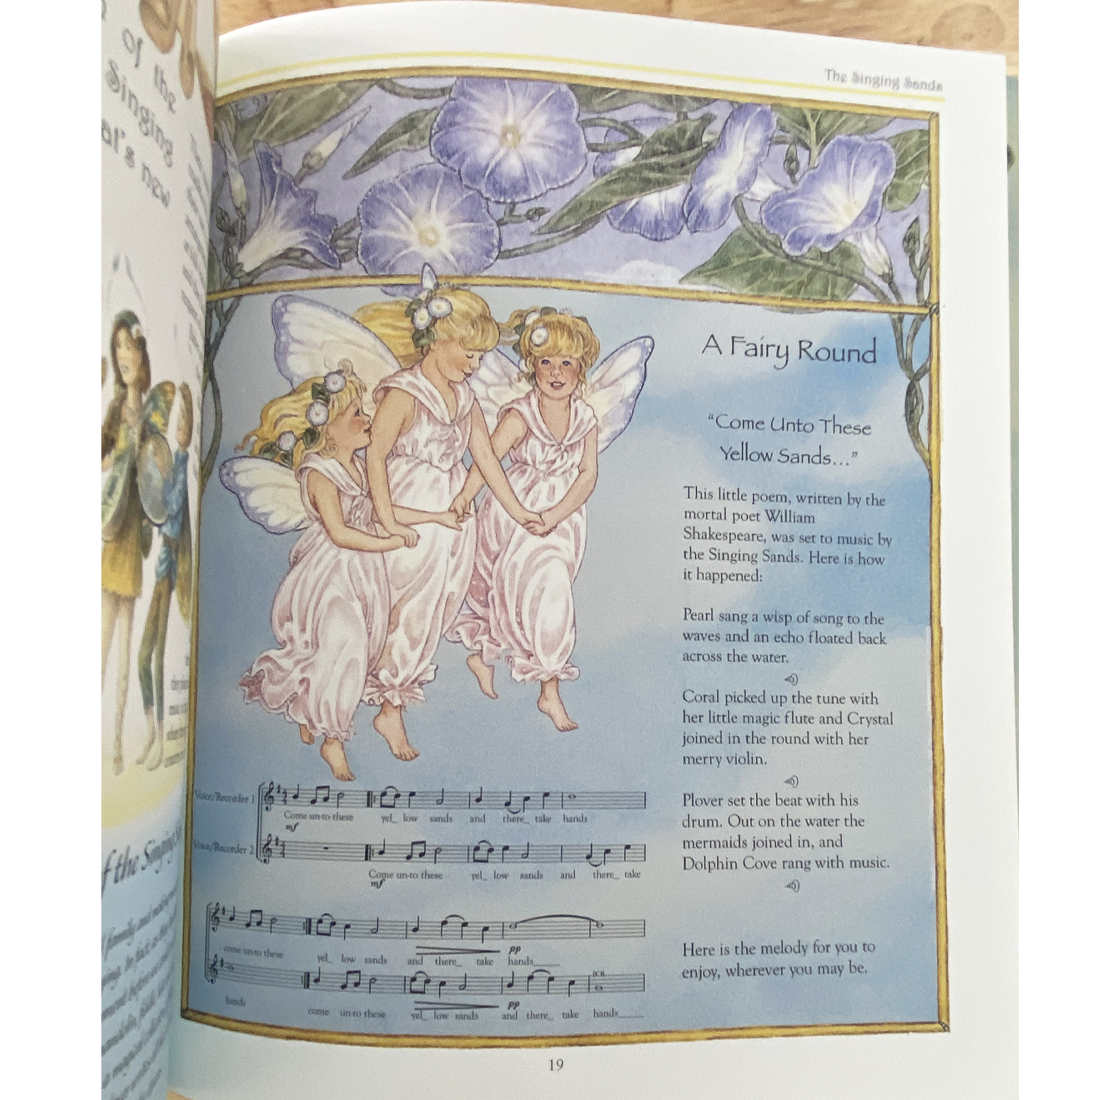 of the
Singing
new
The Singing Sands
A Fairy Round
“Come Unto These
Yellow Sands...”
This little poem, written by the
mortal poet William
Shakespeare, was set to music by
the Singing Sands. Here is how
it happened:
Pearl sang a wisp of song to the
waves and an echo floated back
across the water.
Coral picked up the tune with
her little magic flute and Crystal
joined in the round with her
merry violin.
Plover set the beat with his
drum. Out on the water the
mermaids joined in, and
Dolphin Cove rang with music.
Here is the melody for you to
enjoy, wherever you may be.
Voice/Recorder 1
Come un-to these yel_ low sands and there_ take hands
mf
Voice/Recorder 2
Come un-to these yel_ low sands and there_ take
mf
pp
come un-to these yel_ low sands and there_ take hands____
pp
hands come un-to these yel_ low sands and there_ take hands____
of the Singing
19